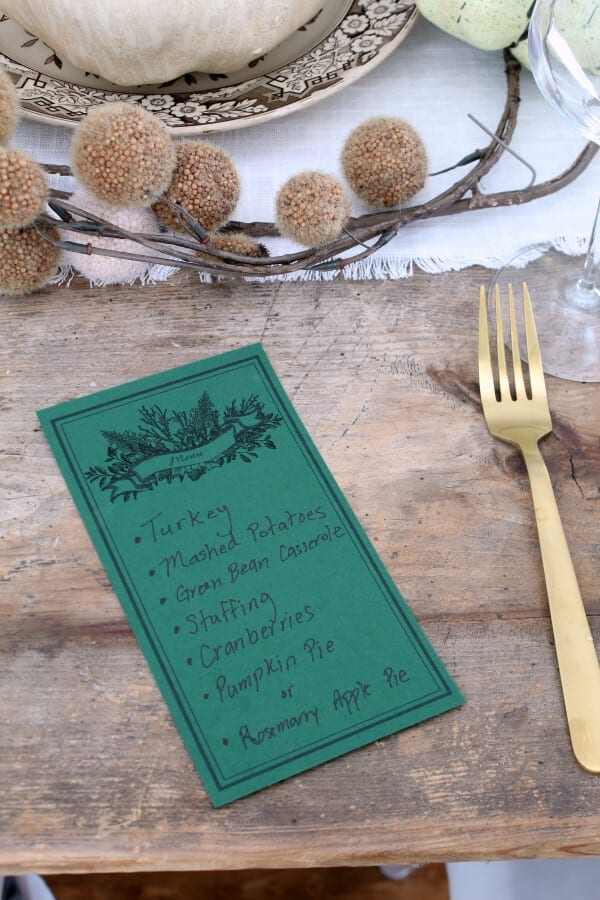 Menu
• Turkey
• Mashed Potatoes
• Green Bean Casserole
• Stuffing
• Cranberries
• Pumpkin Pie
or
• Rosemarry Apple Pie